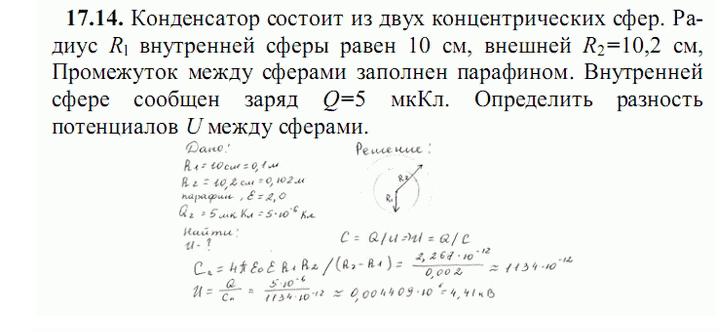 17.14. Конденсатор состоит из двух концентрических сфер. Ра-
диус R1 внутренней сферы равен 10 см, внешней R2=10,2 см,
Промежуток между сферами заполнен парафином. Внутренней
сфере сообщен заряд Q=5 мкКл. Определить разность
потенциалов U между сферами.
Дано: Решение:
R1=10см=0,1м
R2=10,2см=0,102м R2
парафин, ε=2,0 R1
Q2=5мкКл=5·10^-6 Кл
Найти:
U-? C = Q/U=>U = Q/C
C2=4πε0ε R1R2/(R2-R1) = 2,267·10^-12/0,002 ≈ 1134·10^-12
U = Q/Cп = 5·10^-6/1134·10^-12 ≈ 0,004409·10^6=4,41кВ